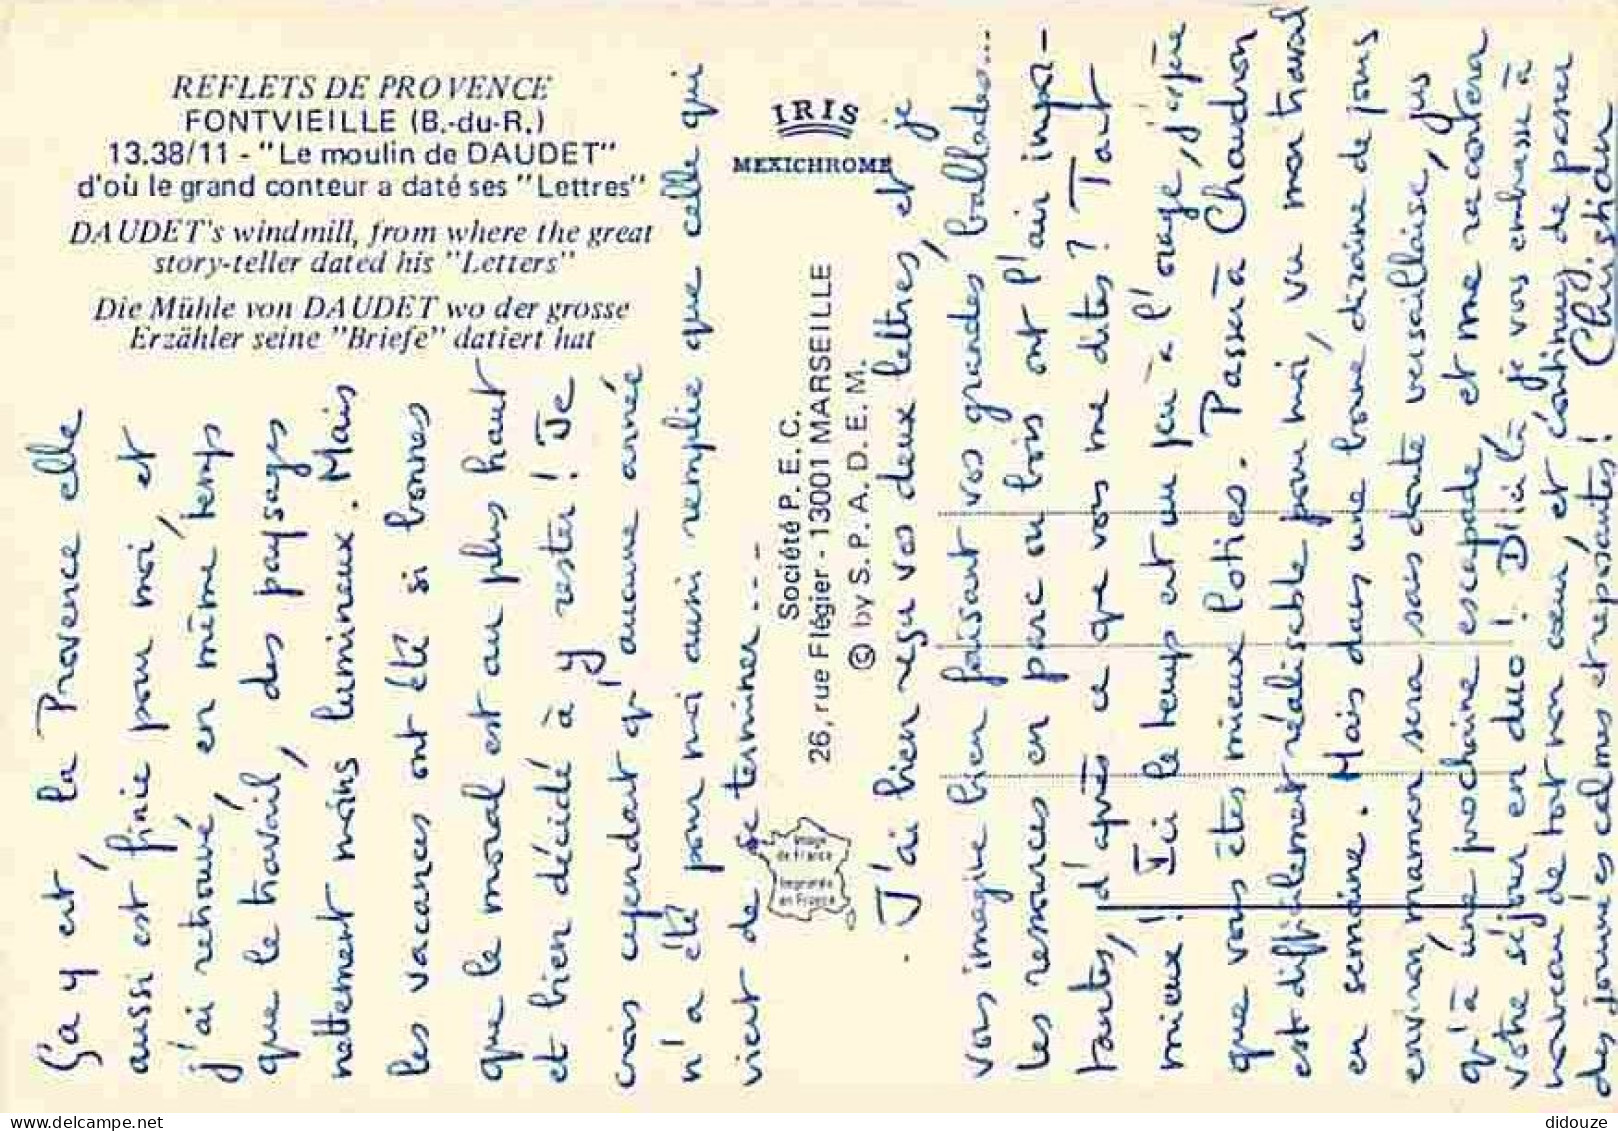 REFLETS DE PROVENCE
FONTVIEILLE (B.-du-R.)
13.38/11 - "Le moulin de DAUDET"
d'où le grand conteur a daté ses "Lettres"
DAUDET's windmill, from where the great
story-teller dated his "Letters"
Die Mühle von DAUDET wo der grosse
Erzähler seine "Briefe" datiert hat
IRIS
MEXICHROME
Société P.E.C.
26, rue Flégier - 13001 MARSEILLE
© by S.P.A.D.E.M.
Image
de France
Imprimée
en France
Ça y est, la Provence elle
aussi est finie pour moi, et
j'ai retrouvé, en même temps
que le travail, des paysages
nettement moins lumineux. Mais
les vacances ont été si bonnes
que le moral est au plus haut
et bien décidé à y rester! Je
crois cependant qu'aucune année
n'a été pour moi aussi remplie que celle qui
vient de se terminer....
J'ai bien reçu vos deux lettres, et je
vous imagine bien faisant vos grandes ballades...
Les ressources en parc ou bois ont l'air impor-
tantes, d'après ce que vous me dites? Tant
mieux! Ici le temps est un peu à l'orage, j'espère
que vous êtes mieux loties. Passer à Chaudron
est difficilement réalisable pour moi, vu mon travail
en semaine. Mais dans une bonne dizaine de jours
environ maman sera sans doute versaillaise, jus
qu'à une prochaine escapade, et me racontera
votre séjour en duo! D'ici là je vous embrasse à
nouveau de tout mon cœur, et continuez de passer
des journées calmes et reposantes! Christian
didouze